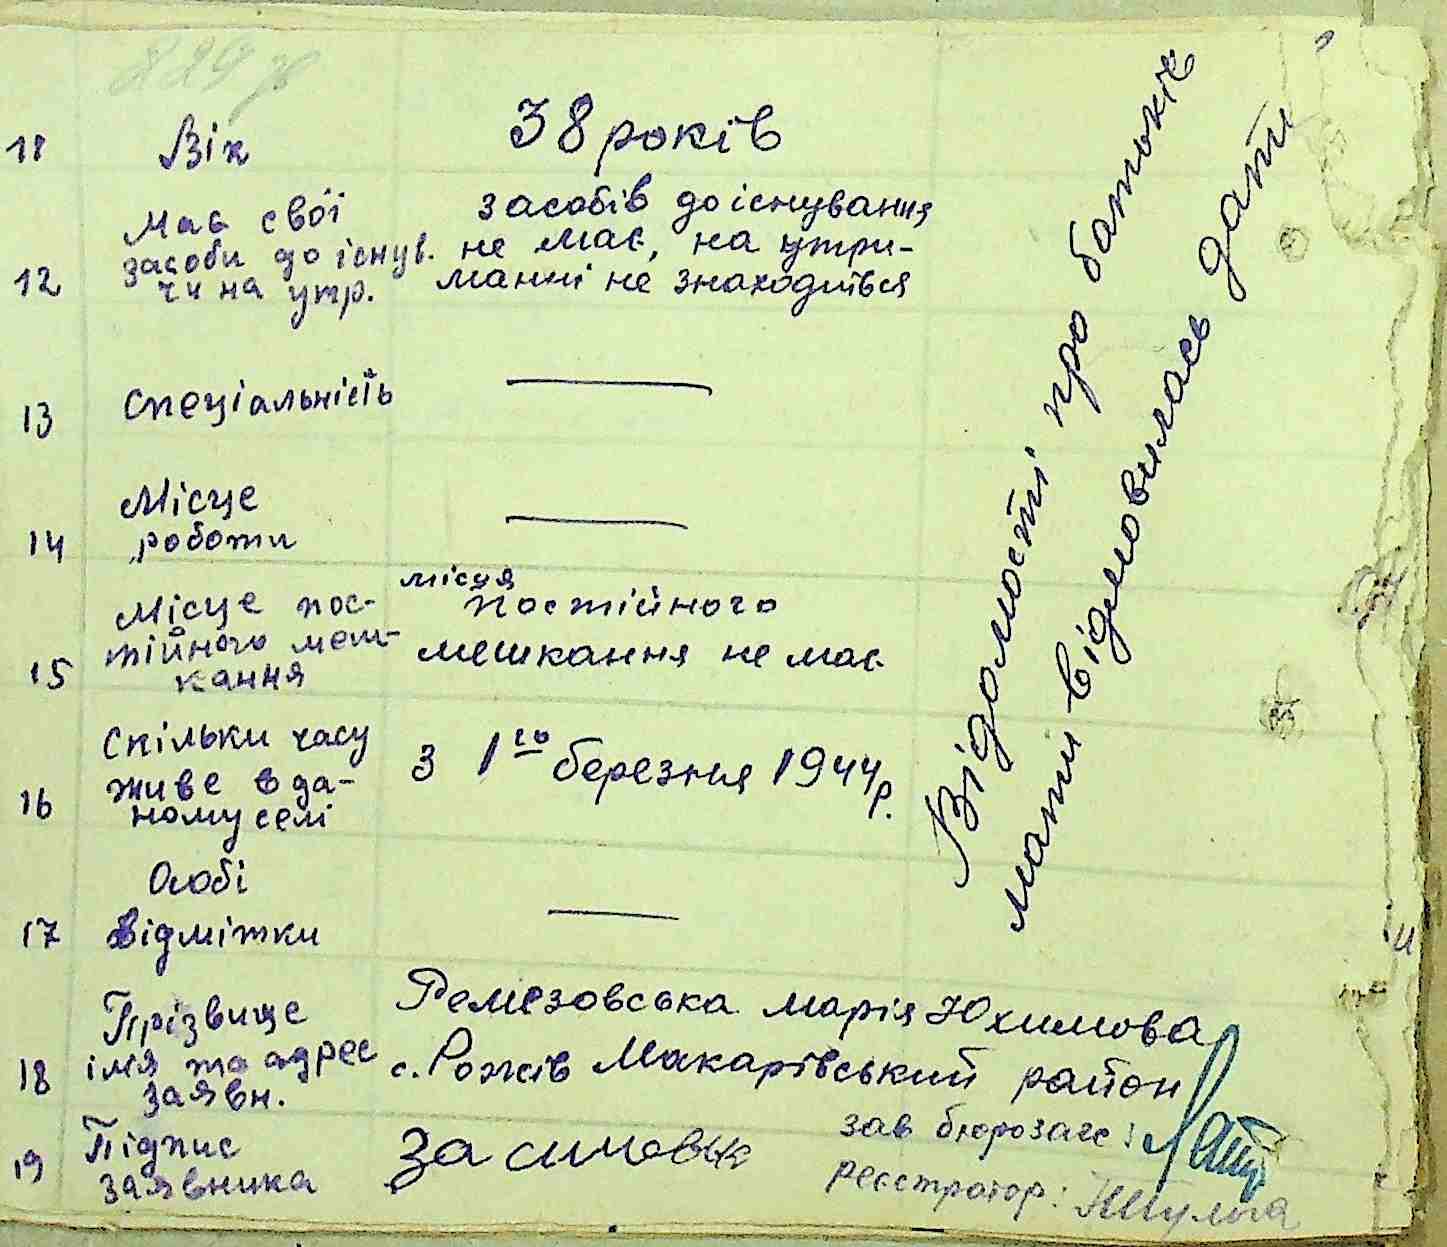 11 Вік 38 років
Має свої засобів до існування
засоби до існув. не має, на утри-
12 чи на утр. манні не знаходиться
13 Спеціальність
Місце
14 роботи
місця
Місце пос- постійного
тійного меш- мешкання не має
15 кання
Скільки часу
живе в да- З 1го березня 1944 р.
16 ному селі
Особі
17 відмітки
Прізвище Ремезовська Марія Юхимова
імя та адрес с. Рожів Макарівський район
18 заявн.
Підпис зав бюрозагс:
19 заявника реєстратор:
Відомості про батьків
мати відмовилась дати